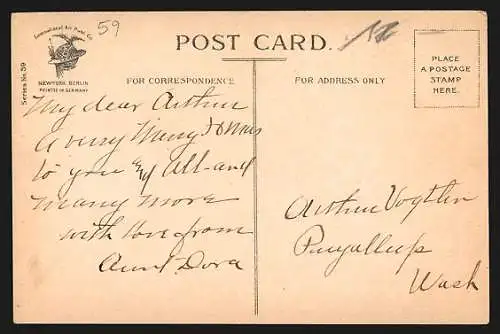 International Art Publ. Co.
NEW YORK BERLIN
PRINTED IN GERMANY
Series No. 59
59
POST CARD.
FOR CORRESPONDENCE
FOR ADDRESS ONLY
PLACE
A POSTAGE
STAMP
HERE.
My dear Arthur
a very Merry Xmas
to you and All - and
many more
with love from
Aunt Dora
Arthur Voghtlin
Puyallup
Wash